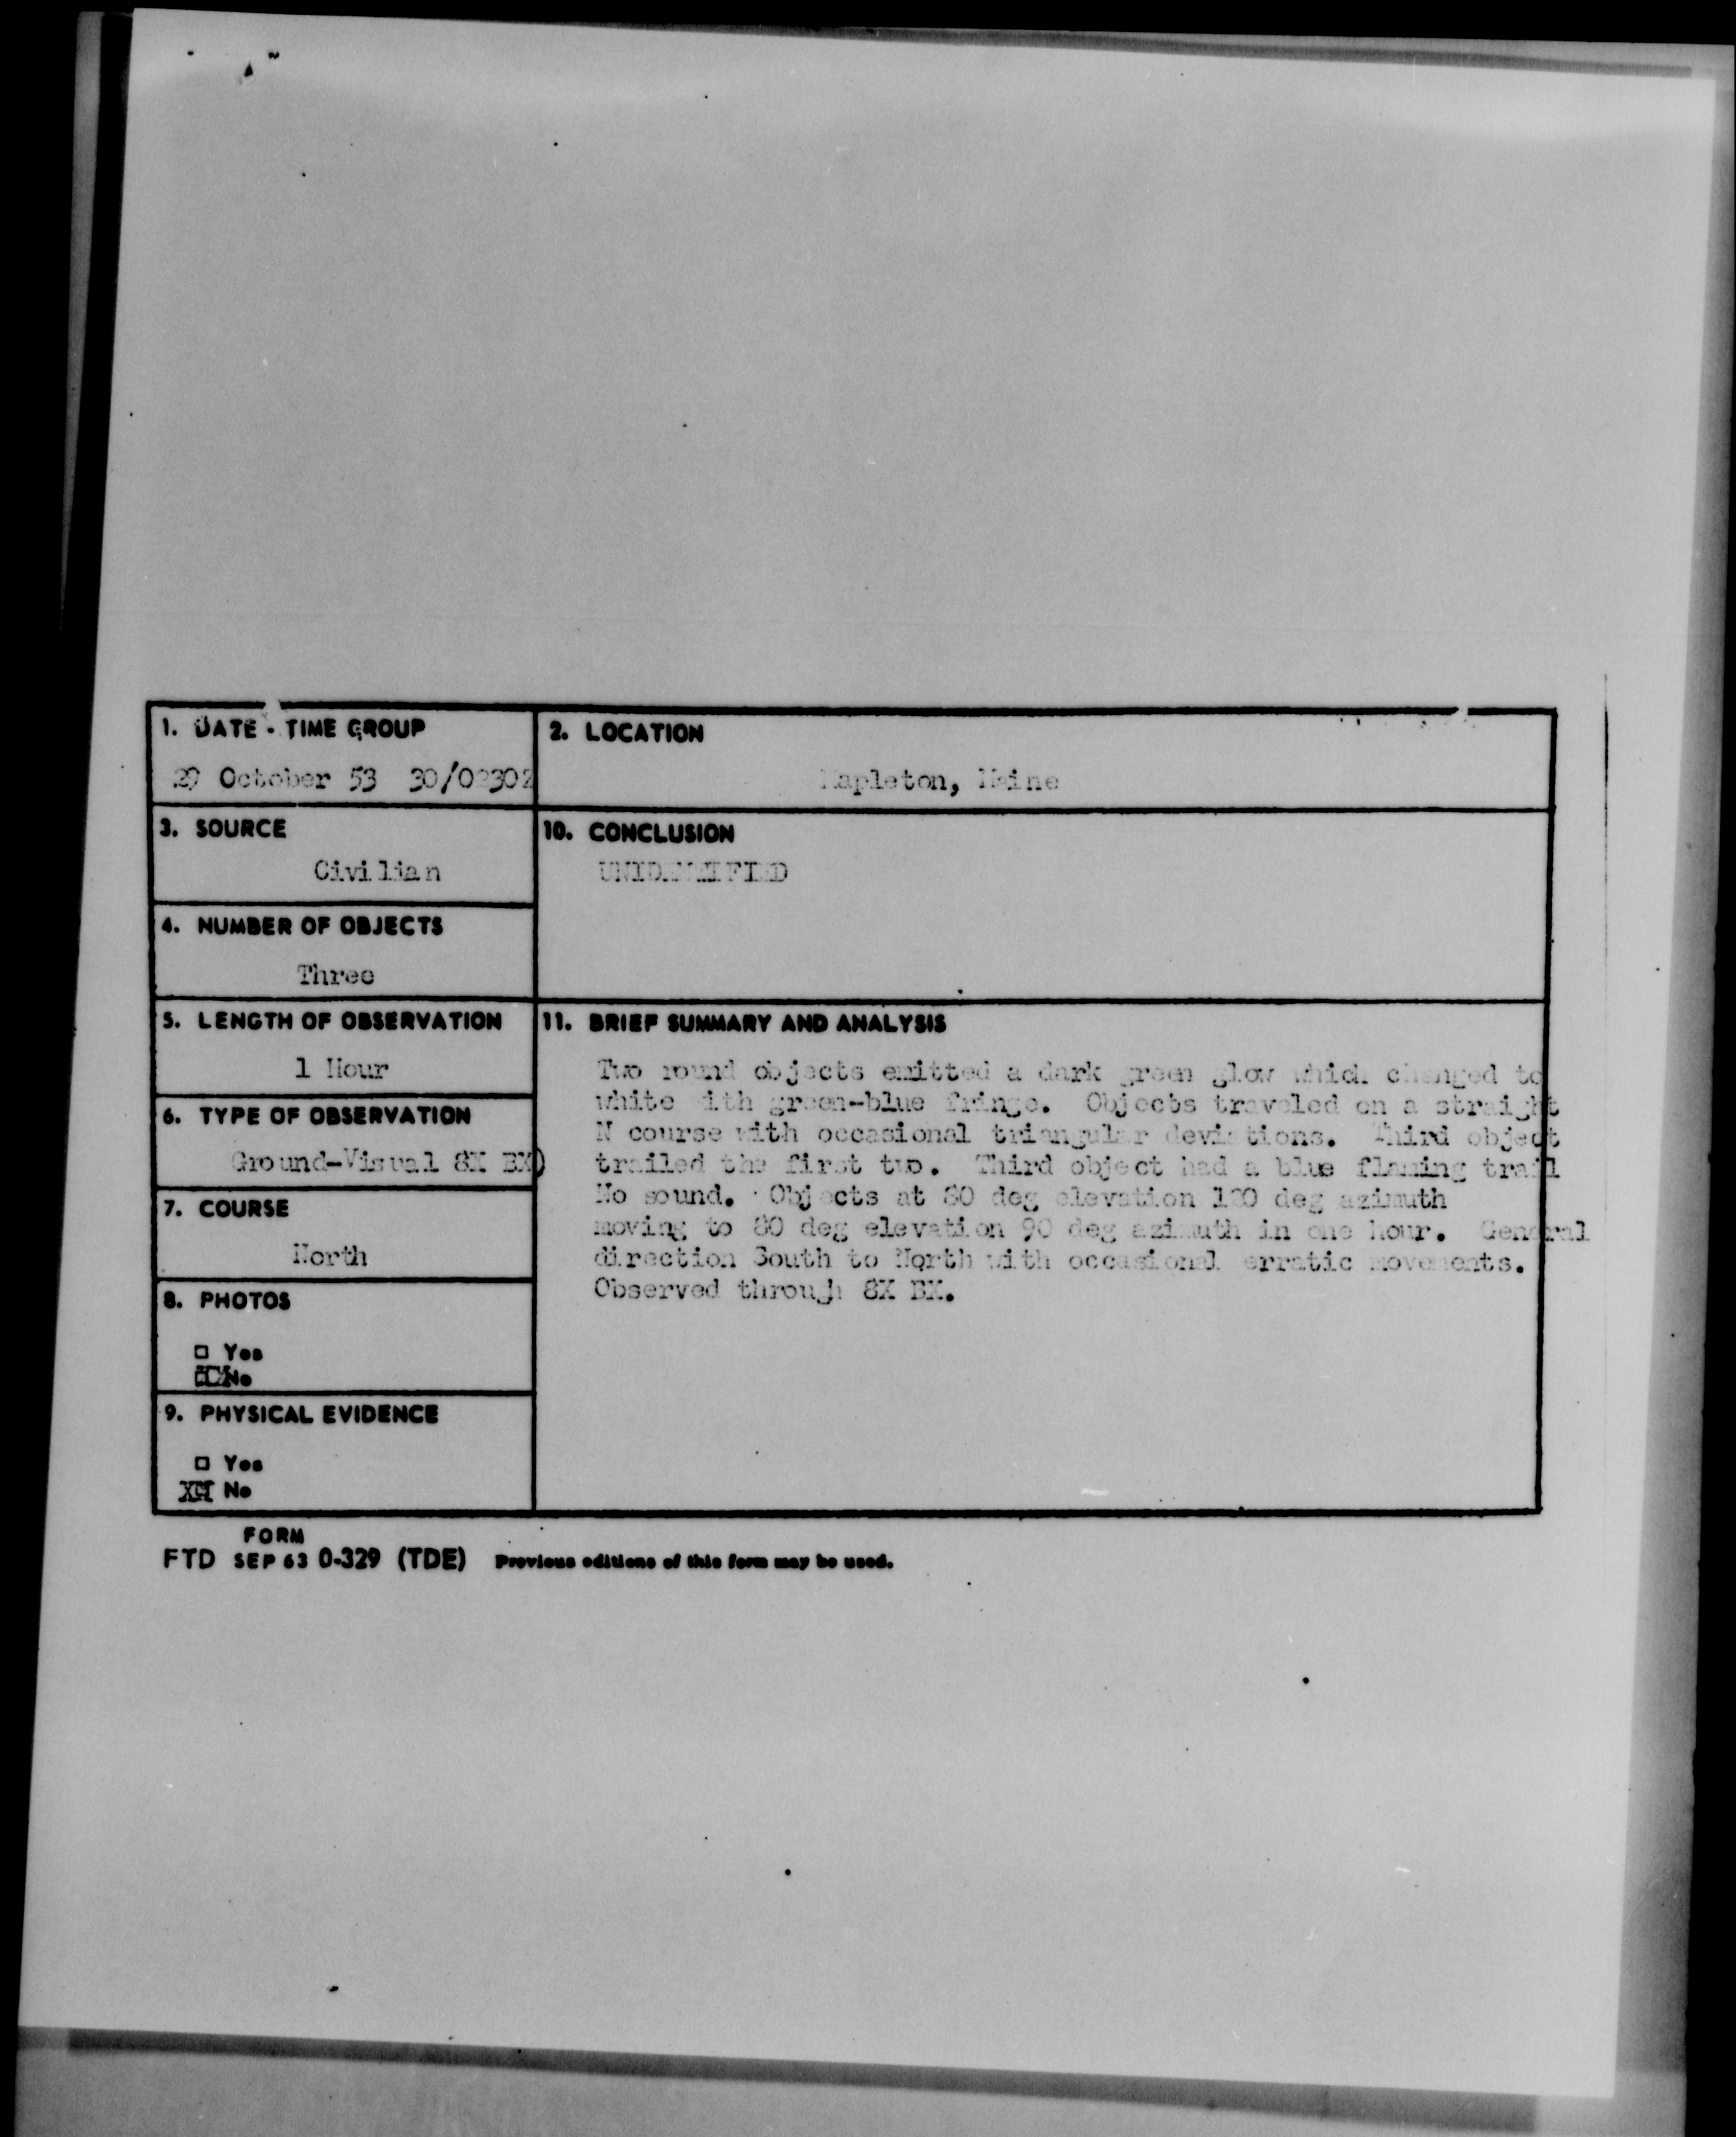 1. DATE - TIME GROUP
29 October 53 30/0230Z
2. LOCATION
Mapleton, Maine
3. SOURCE
Civilian
10. CONCLUSION
UNIDENTIFIED
4. NUMBER OF OBJECTS
Three
5. LENGTH OF OBSERVATION
1 Hour
6. TYPE OF OBSERVATION
Ground-Visual 8X BX)
7. COURSE
North
8. PHOTOS
□ Yes
No
9. PHYSICAL EVIDENCE
□ Yes
No
11. BRIEF SUMMARY AND ANALYSIS
Two round objects emitted a dark green glow which changed to
white with green-blue fringe. Objects traveled on a straight
N course with occasional triangular deviations. Third object
trailed the first two. Third object had a blue flaming trail
No sound. Objects at 80 deg elevation deg azimuth
moving to 80 deg elevation 90 deg azimuth in one hour. General
direction South to North with occasional erratic movements.
Observed through 8X BX.
FORM
FTD SEP 63 0-329 (TDE) Previous editions of this form may be used.